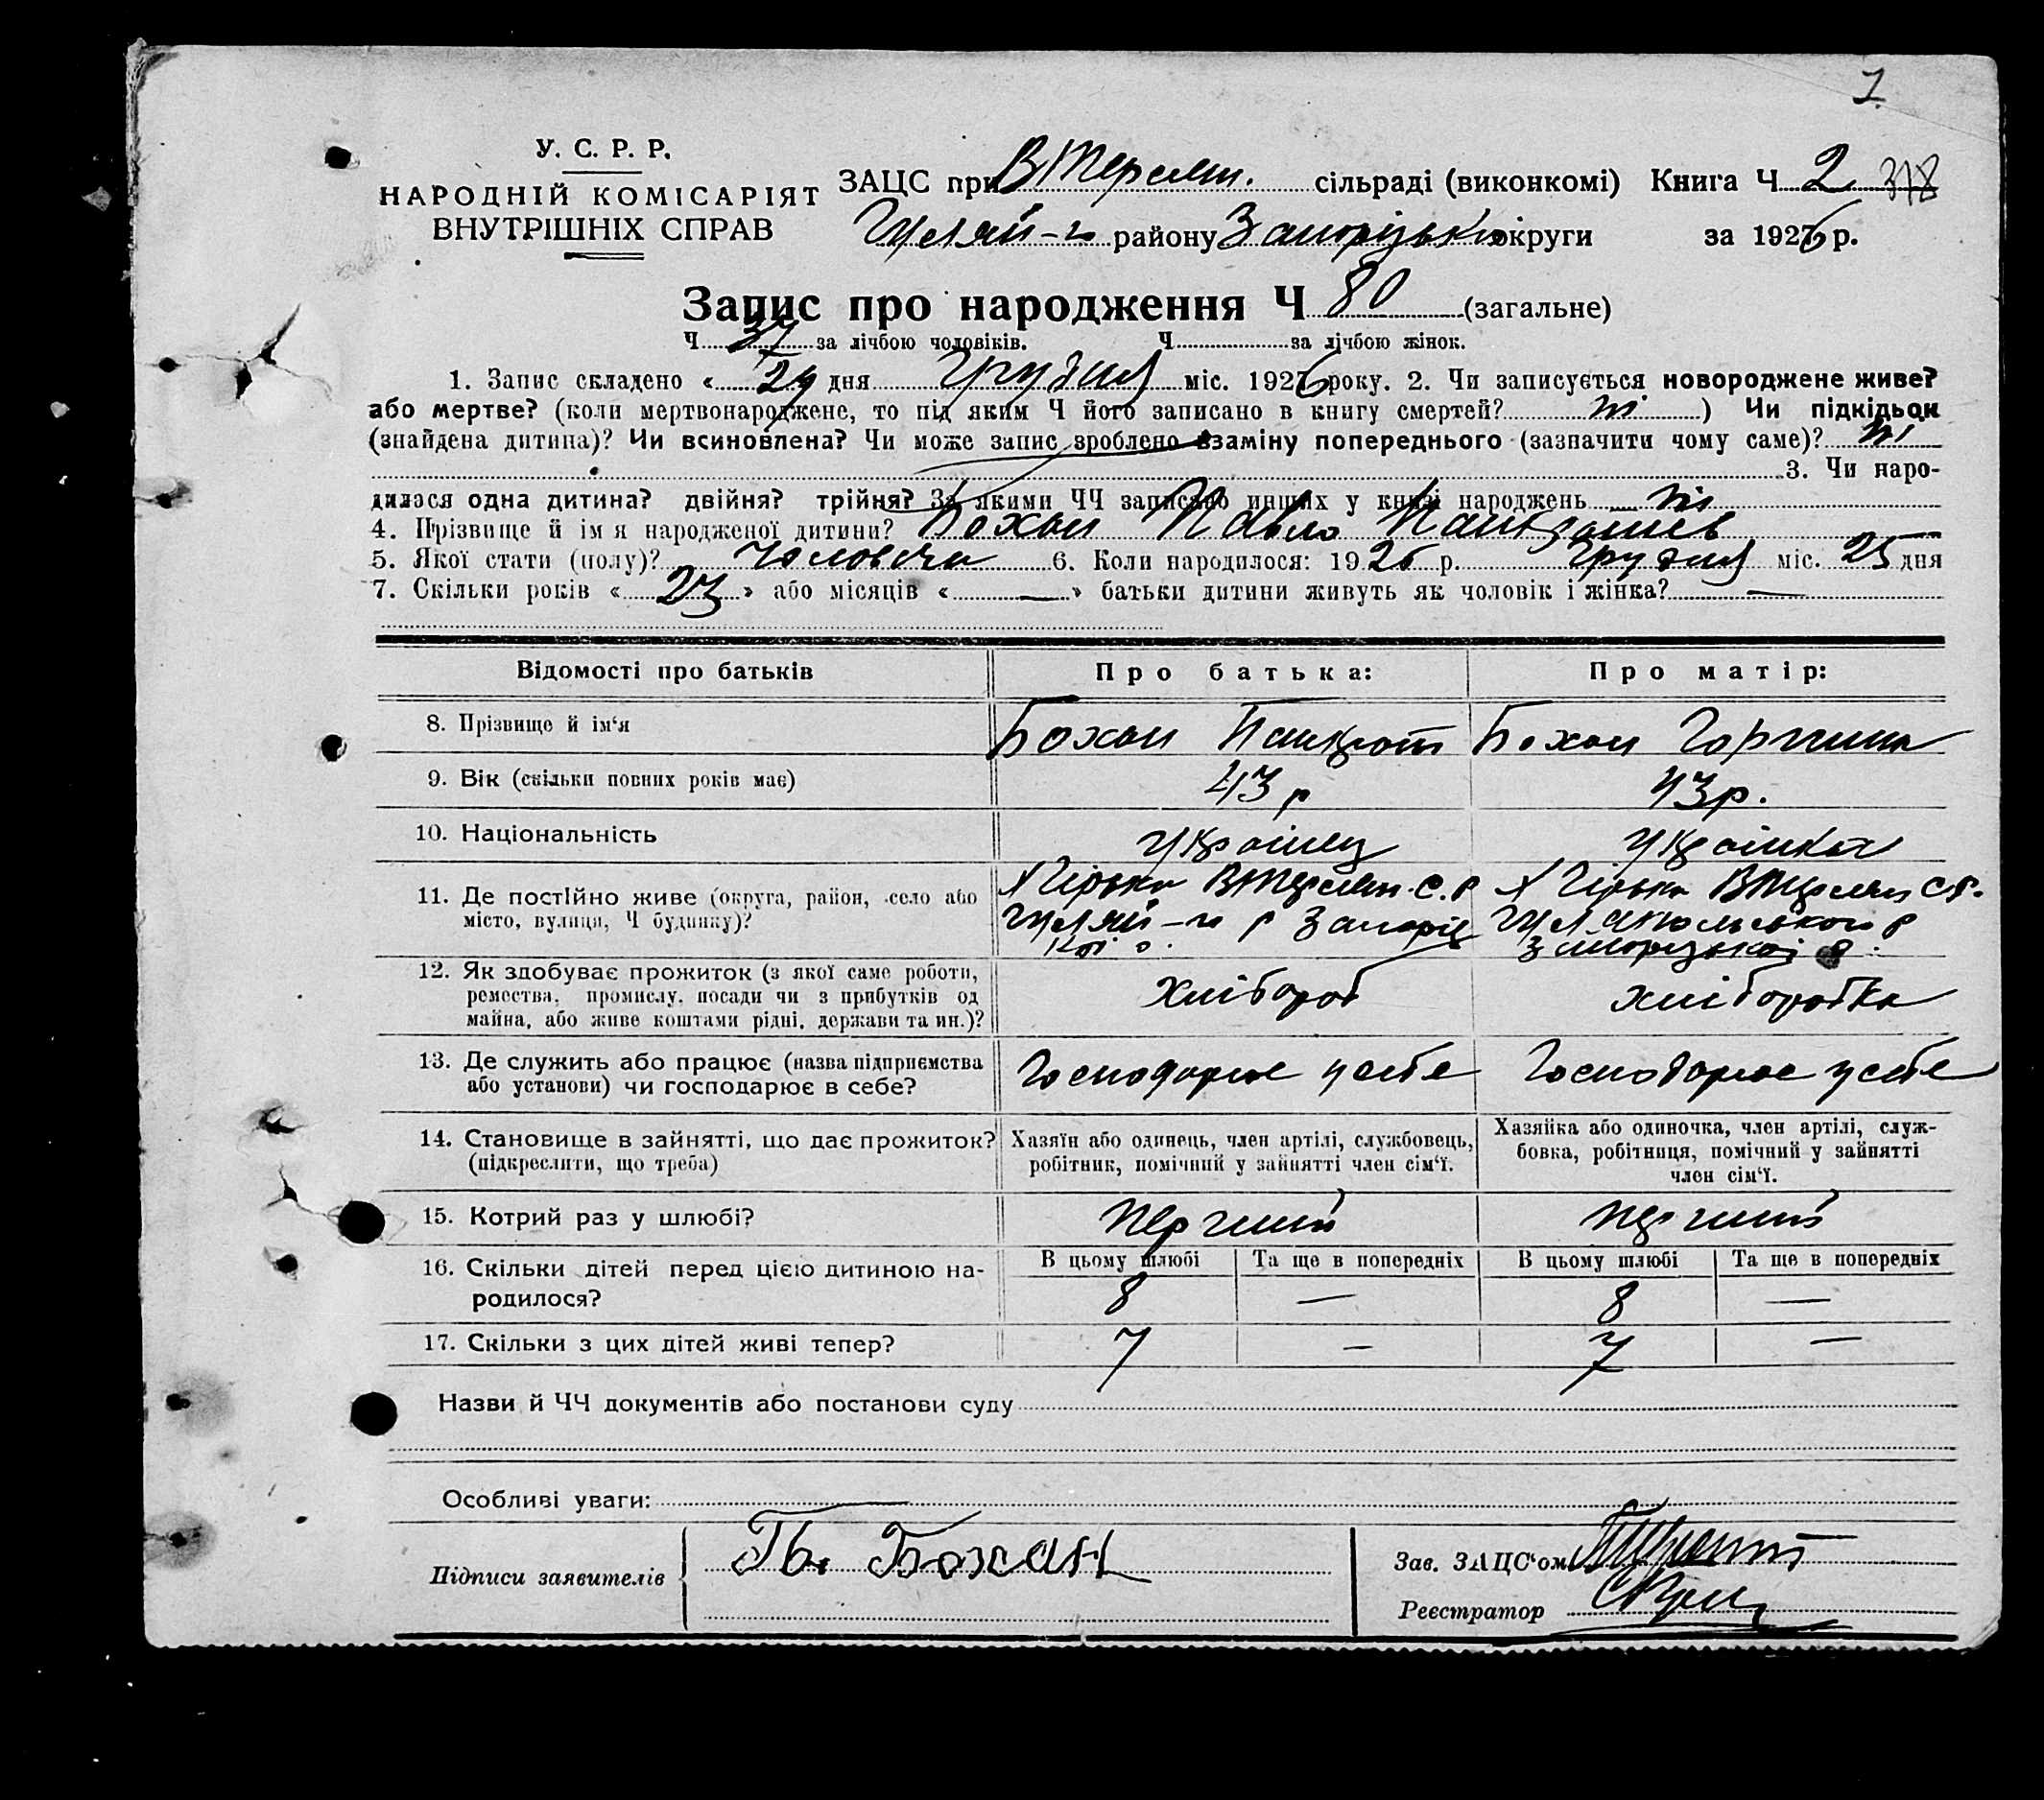 У. С. Р. Р.
НАРОДНІЙ КОМІСАРІЯТ
ВНУТРІШНІХ СПРАВ
ЗАЦС при В Терсян. сільраді (виконкомі) Книга Ч 2 318
Гуляй-го району Запорізьки округи за 1926 р.
Запис про народження Ч 80 (загальне)
Ч 37 за лічбою чоловіків. Ч за лічбою жінок.
1. Запис складено « дня Грудня міс. 1926 року. 2. Чи записується новороджене живе?
або мертве? (коли мертвонароджене, то під яким Ч його записано в книгу смертей? ні ) Чи підкідьок
(знайдена дитина)? Чи всиновлена? Чи може запис зроблено взаміну попереднього (зазначити чому саме)? ні
3. Чи наро-
дилася одна дитина? двійня? трійня? За якими ЧЧ записано инших у книзі народжень ні
4. Прізвище й ім я народженої дитини? Бохан Павло
5. Якої стати (полу)? 6. Коли народилося: 1926 р. Грудня міс. 25 дня
7. Скільки років « 23 » або місяців « — » батьки дитини живуть як чоловік і жінка? —
Відомості про батьків Про батька: Про матір:
8. Прізвище й ім‘я Бохан Панкрат Бохан Горпина
9. Вік (скільки повних років має) 43 р 43 р.
10. Національність Українец Українка
11. Де постійно живе (округа, район, село або
місто, вулиця, Ч будинку)?
Х Гірьки В Терсян. С. Р Х Гірьки В Терсян С Р.
Гуляй-го р Запоріз Гуляйпольського р
кої о. Запорізької о.
12. Як здобуває прожиток (з якої саме роботи,
ремества, промислу, посади чи з прибутків од
майна, або живе коштами рідні, держави та ин.)?
Хлібороб хліборобка
13. Де служить або працює (назва підприємства
або установи) чи господарює в себе?
Господарює у себе Господарює у себе
14. Становище в зайнятті, що дає прожиток?
(підкреслити, що треба)
Хазяїн або одинець, член артілі, службовець,
робітник, помічний у зайнятті член сім‘ї.
Хазяйка або одиночка, член артілі, служ-
бовка, робітниця, помічний у зайнятті
член сім‘ї.
15. Котрий раз у шлюбі? перший перший
16. Скільки дітей перед цією дитиною на-
родилося?
В цьому шлюбі Та ще в попередніх В цьому шлюбі Та ще в попередніх
8 — 8 —
17. Скільки з цих дітей живі тепер? 7 — 7 —
Назви й ЧЧ документів або постанови суду
Особливі уваги:
Підписи заявителів Бохан
Зав. ЗАЦС‘ом
Реєстратор